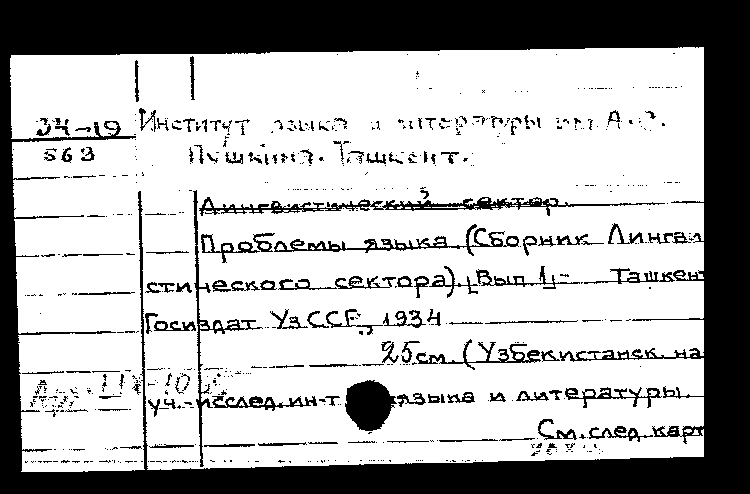 34-19 Институт языка и литературы им. А.С.
563 Пушкина. Ташкент.
Лингвистический сектор.
Проблемы языка. (Сборник Лингви
стического сектора). [Вып. 1] - Ташкент
Госиздат УзССР, 1934
25см. (Узбекистанск. на
уч.-исслед. ин-т языка и литературы.
См. след. карт